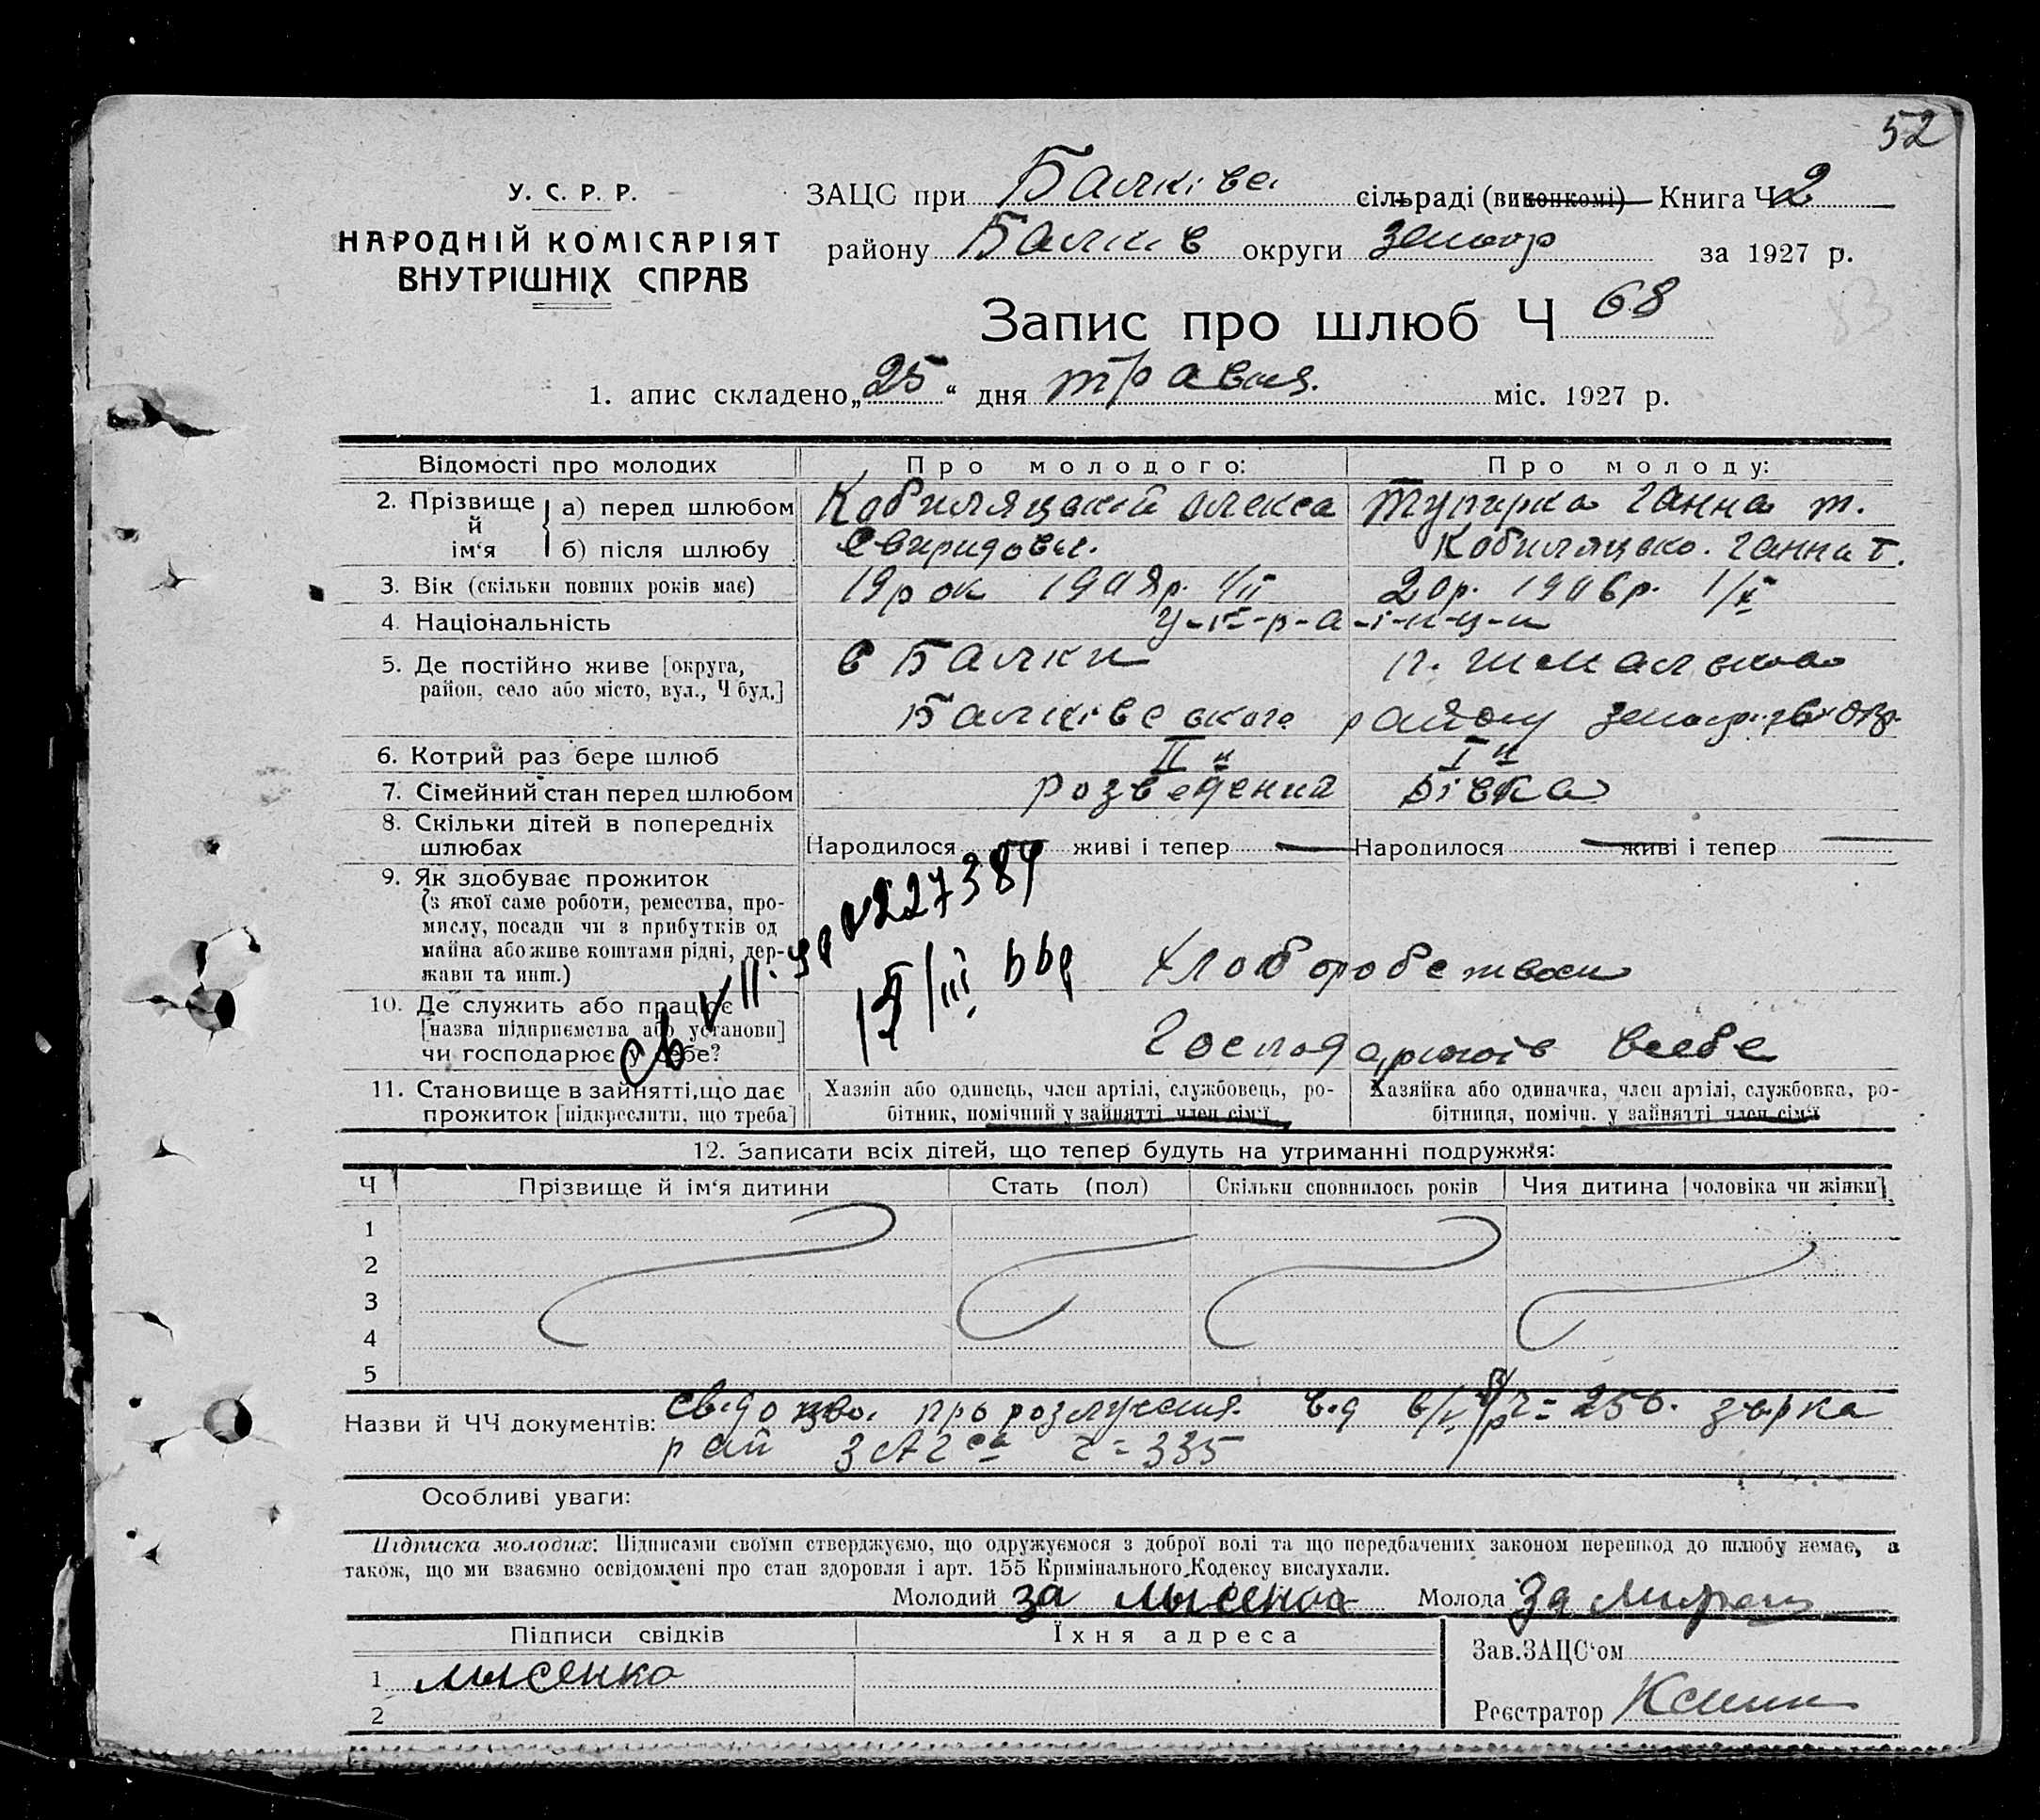 52
У. С. Р. Р.
НАРОДНІЙ КОМІСАРІЯТ
ВНУТРІШНІХ СПРАВ
ЗАЦС при Балків сільраді (виконкомі) Книга Ч 2
району Балків округи Запор за 1927 р.
Запис про шлюб Ч 68
1. апис складено „25“ дня травня міс. 1927 р.
Відомості про молодих Про молодого: Про молоду:
2. Прізвище й ім‘я а) перед шлюбом Кобиляцький Олекса Ганна Т.
б) після шлюбу Свиридов. Кобиляцько. Ганна Т.
3. Вік (скільки повних років має) 19 рок 1908 р. 1/II 20 р. 1906 р. 1/X
4. Національність у-к-р-а-ї-н-ц-и
5. Де постійно живе [округа, район, село або місто, вул., Ч буд.] с Балки
Балківського району
6. Котрий раз бере шлюб II й I й
7. Сімейний стан перед шлюбом розведений дівка
8. Скільки дітей в попередніх шлюбах Народилося — живі і тепер — Народилося — живі і тепер —
9. Як здобуває прожиток
(з якої саме роботи, ремества, промислу, посади чи з прибутків од майна або живе коштами рідні, держави та инш.)
227384
10. Де служить або працює
[назва підприємства або установи]
чи господарює у себе? всебе
11. Становище в зайнятті, що дає прожиток [підкреслити, що треба] Хазяїн або одинець, член артілі, службовець, робітник, помічний у зайнятті член сім‘ї Хазяйка або одиначка, член артілі, службовка, робітниця, помічн. у зайнятті член сім‘ї
12. Записати всіх дітей, що тепер будуть на утриманні подружжя:
Ч Прізвище й ім‘я дитини Стать (пол) Скільки сповнилось років Чия дитина [чоловіка чи жінки]
1
2
3
4
5
Назви й ЧЧ документів: про розлучення від
рай ЗАГса ч = 335
Особливі уваги:
Підписка молодих: Підписами своїми стверджуємо, що одружуємося з доброї волі та що передбачених законом перешкод до шлюбу немає, а
також, що ми взаємно освідомлені про стан здоровля і арт. 155 Кримінального Кодексу вислухали.
Молодий за Лысенко Молода За
Підписи свідків Їхня адреса
Зав.ЗАЦС‘ом
1 Лысенко
2
Реєстратор